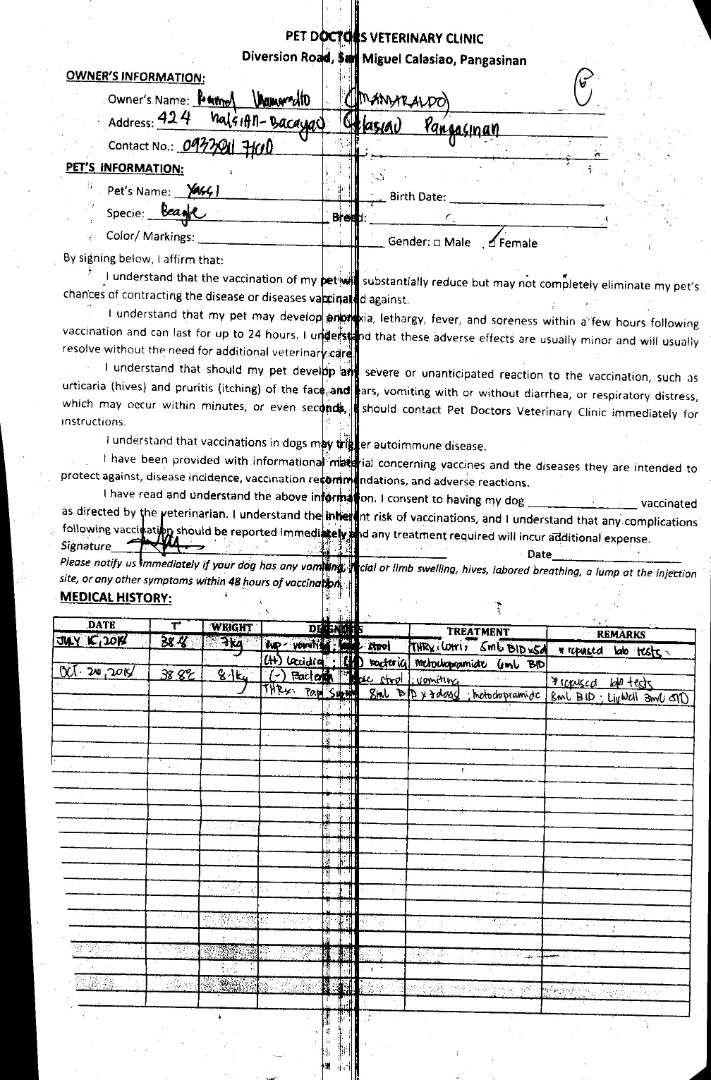 PET DOCTORS VETERINARY CLINIC
Diversion Road, San Miguel Calasiao, Pangasinan
OWNER'S INFORMATION:
Owner's Name: (MAMARALDO)
Address: 424 Nalsian-Bacayao Calasiao Pangasinan
Contact No.:
PET'S INFORMATION:
Pet's Name: Yassi Birth Date:
Specie: Beagle Breed:
Color/ Markings: Gender: □ Male □ Female
By signing below, I affirm that:
I understand that the vaccination of my pet will substantially reduce but may not completely eliminate my pet's
chances of contracting the disease or diseases vaccinated against.
I understand that my pet may develop anorexia, lethargy, fever, and soreness within a few hours following
vaccination and can last for up to 24 hours. I understand that these adverse effects are usually minor and will usually
resolve without the need for additional veterinary care.
I understand that should my pet develop any severe or unanticipated reaction to the vaccination, such as
urticaria (hives) and pruritis (itching) of the face and ears, vomiting with or without diarrhea, or respiratory distress,
which may occur within minutes, or even seconds, I should contact Pet Doctors Veterinary Clinic immediately for
instructions.
I understand that vaccinations in dogs may trigger autoimmune disease.
I have been provided with informational material concerning vaccines and the diseases they are intended to
protect against, disease incidence, vaccination recommendations, and adverse reactions.
I have read and understand the above information. I consent to having my dog vaccinated
as directed by the veterinarian. I understand the inherent risk of vaccinations, and I understand that any complications
following vaccination should be reported immediately and any treatment required will incur additional expense.
Signature Date
Please notify us immediately if your dog has any vomiting, facial or limb swelling, hives, labored breathing, a lump at the injection
site, or any other symptoms within 48 hours of vaccination.
MEDICAL HISTORY:
DATE T° WEIGHT DIAGNOSIS TREATMENT REMARKS
JULY 15, 38.8 7kg vomiting; stool THRx: 5ml BID x5d * refused lab tests.
(++) bacteria metoclopramide 4ml BID
OCT. 38.8°C 8.1kg (-) Bacteria stool ; vomiting * refused lab tests
THRx: 8ml BID x 7 days ; metoclopramide 8ml BID ; LivWell 3ml